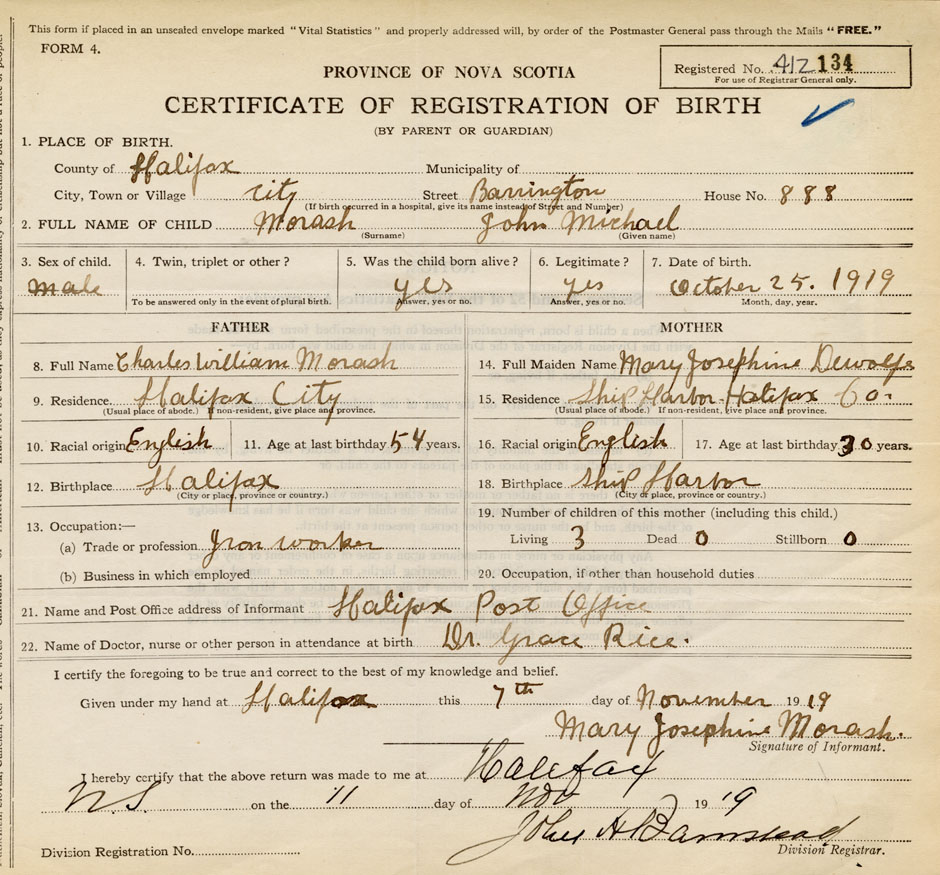 This form if placed in an unsealed envelope marked "Vital Statistics" and properly addressed will, by order of the Postmaster General pass through the Mails "FREE."
FORM 4.
Registered No. 412 134
For use of Registrar General only.
PROVINCE OF NOVA SCOTIA
CERTIFICATE OF REGISTRATION OF BIRTH
(BY PARENT OR GUARDIAN)
1. PLACE OF BIRTH.
County of Halifax Municipality of
City, Town or Village City Street Barrington House No. 888
(If birth occurred in a hospital, give its name instead of Street and Number)
2. FULL NAME OF CHILD Morash John Michael
(Surname) (Given name)
3. Sex of child. 4. Twin, triplet or other? 5. Was the child born alive? 6. Legitimate? 7. Date of birth.
Male yes yes October 25. 1919
To be answered only in the event of plural birth. Answer, yes or no. Answer, yes or no. Month, day, year.
FATHER MOTHER
8. Full Name Charles William Morash 14. Full Maiden Name Mary Josephine Dewolfe
9. Residence. Halifax City 15. Residence Ship Harbor Halifax Co.
(Usual place of abode.) If non-resident, give place and province. (Usual place of abode.) If non-resident, give place and province.
10. Racial origin English 11. Age at last birthday 54 years. 16. Racial origin English 17. Age at last birthday 30 years.
12. Birthplace Halifax 18. Birthplace Ship Harbor
(City or place, province or country.) (City or place, province or country.)
13. Occupation:— 19. Number of children of this mother (including this child.)
(a) Trade or profession Iron worker Living 3 Dead 0 Stillborn 0
(b) Business in which employed 20. Occupation, if other than household duties
21. Name and Post Office address of Informant Halifax Post Office
22. Name of Doctor, nurse or other person in attendance at birth Dr. Grace Rice.
I certify the foregoing to be true and correct to the best of my knowledge and belief.
Given under my hand at Halifax this 7th day of November 1919
Mary Josephine Morash.
Signature of Informant.
I hereby certify that the above return was made to me at Halifax
N.S. on the 11 day of Nov 19 '19
John H Barnstead
Division Registrar.
Division Registration No.